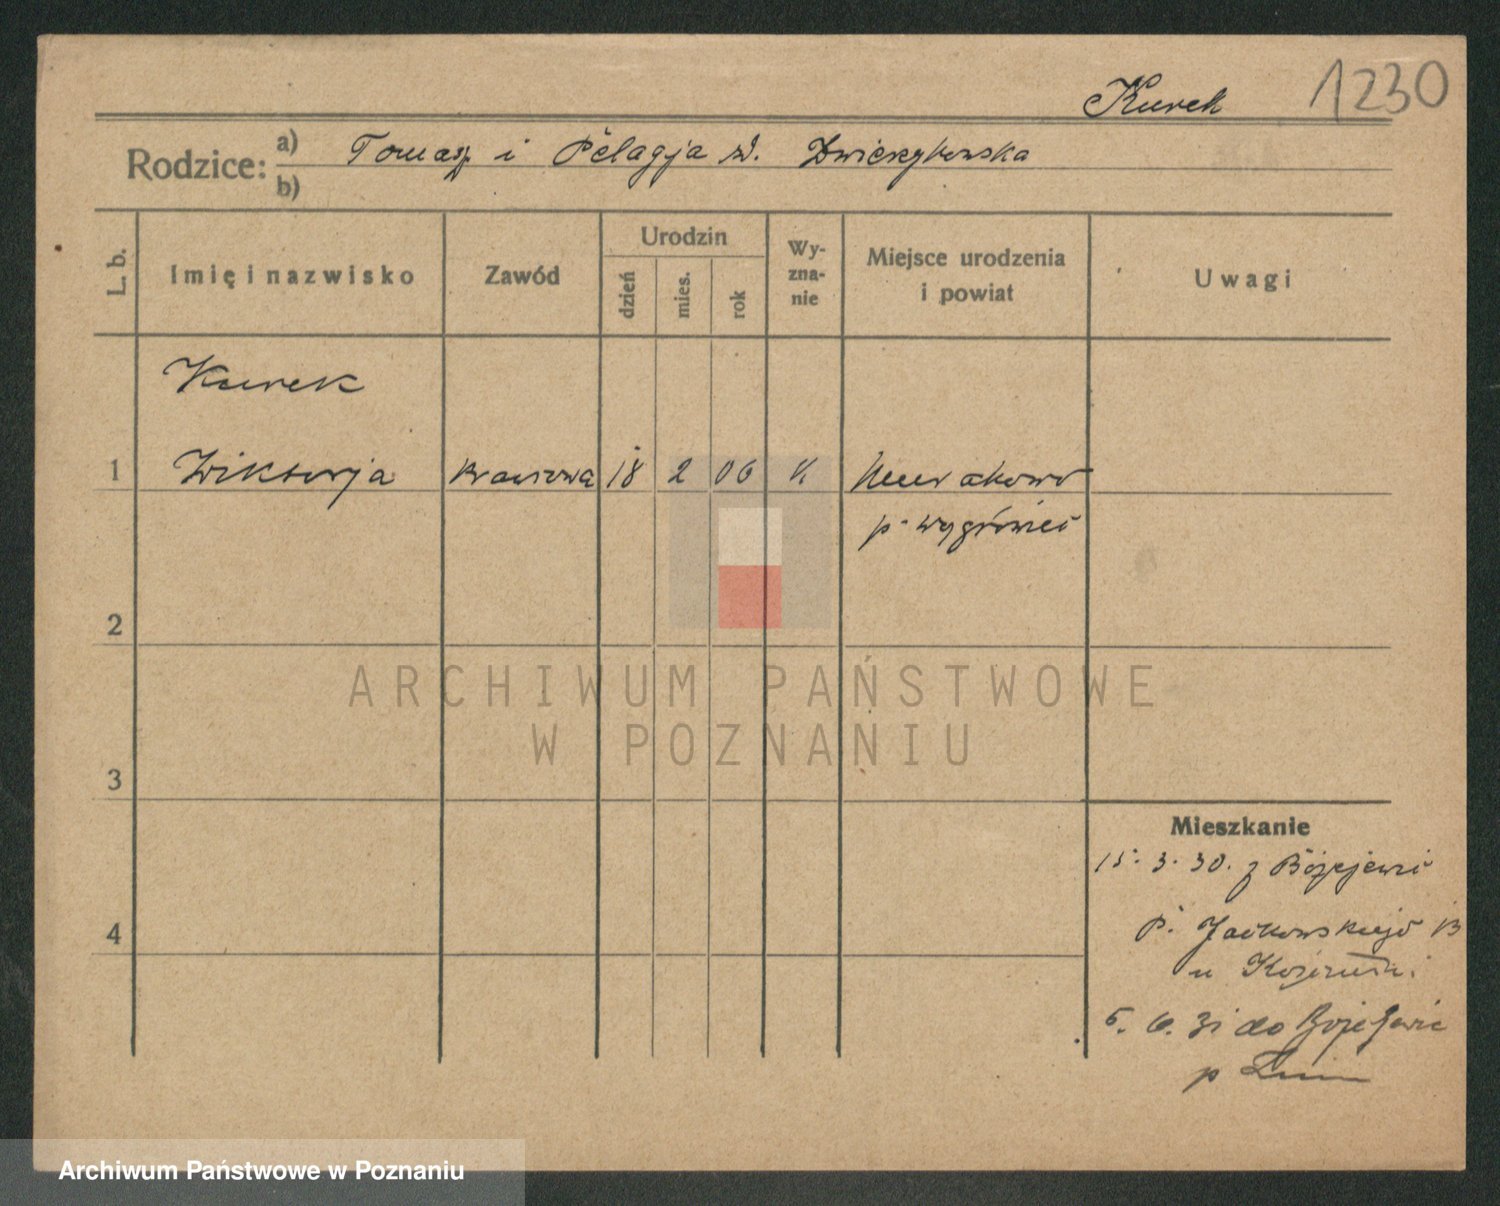 Kurek 1230
Rodzice: a) Tomasz i Pelagja
b)
L. b. Imię i nazwisko Zawód Urodzin dzień mies. rok Wy-zna-nie Miejsce urodzenia i powiat Uwagi
Kurek
1 Wiktorja krawcowa 18 2 06 K
p. wągrowiec
2
3
4
Mieszkanie
15. 3. 30. z
P. Jackowskiego 13
u
5. 6. 31 do
p
ARCHIWUM PAŃSTWOWE
W POZNANIU
Archiwum Państwowe w Poznaniu